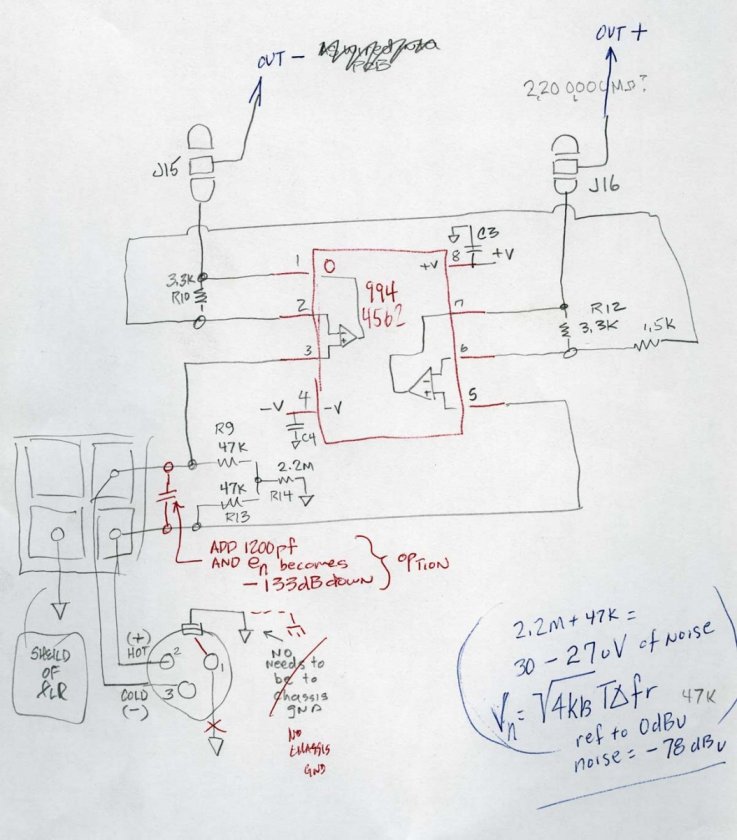 OUT -
PCB
OUT +
J15
J16
C3
1
0
+V
8
+V
3.3K
R10
994
4562
2
7
R12
3.3K
1.5K
3
6
-V
4
-V
5
C4
R9
47K
2.2M
R14
47K
R13
ADD 1200pf
AND en becomes
-133dB down
OPTION
SHEILD
OF
XLR
(+)
HOT
2
1
3
COLD
(-)
NO
Needs to
be to
chassis
gND
NO
CHASSIS
GND
2.2M + 47K =
30 - 27uV of noise
Vn = √4kB TΔfr
47K
ref to 0dBu
noise = -78 dBu